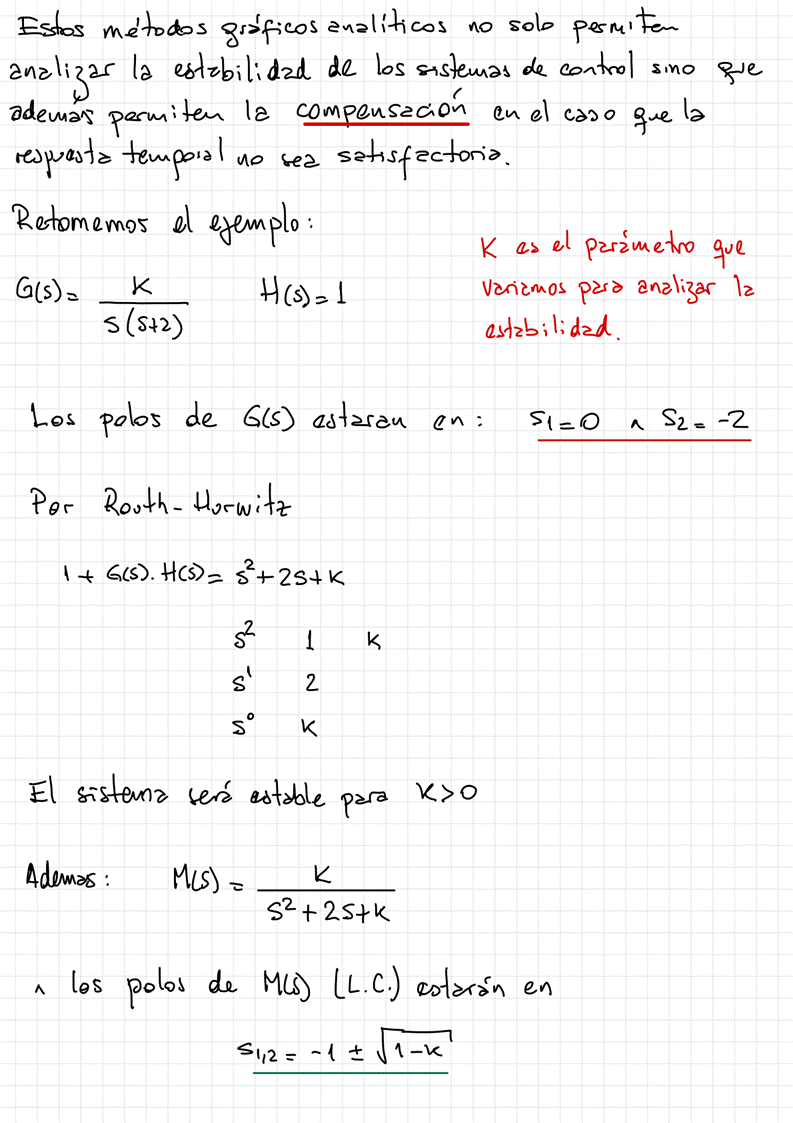 Estos métodos gráficos analíticos no solo permiten
analizar la estabilidad de los sistemas de control sino que
además permiten la compensación en el caso que la
respuesta temporal no sea satisfactoria.
Retomemos el ejemplo:
K es el parámetro que
variamos para analizar la
estabilidad.
G(s) = K / s(s+2)    H(s) = 1
Los polos de G(s) estaran en: s1 = 0 ∧ s2 = -2
Por Routh-Hurwitz
1 + G(s).H(s) = s² + 2s + K
s² 1 K
s¹ 2
s⁰ K
El sistema será estable para K > 0
Ademas: M(s) = K / s² + 2s + K
∧ los polos de M(s) (L.C.) estarán en
s1,2 = -1 ± √(1-K)